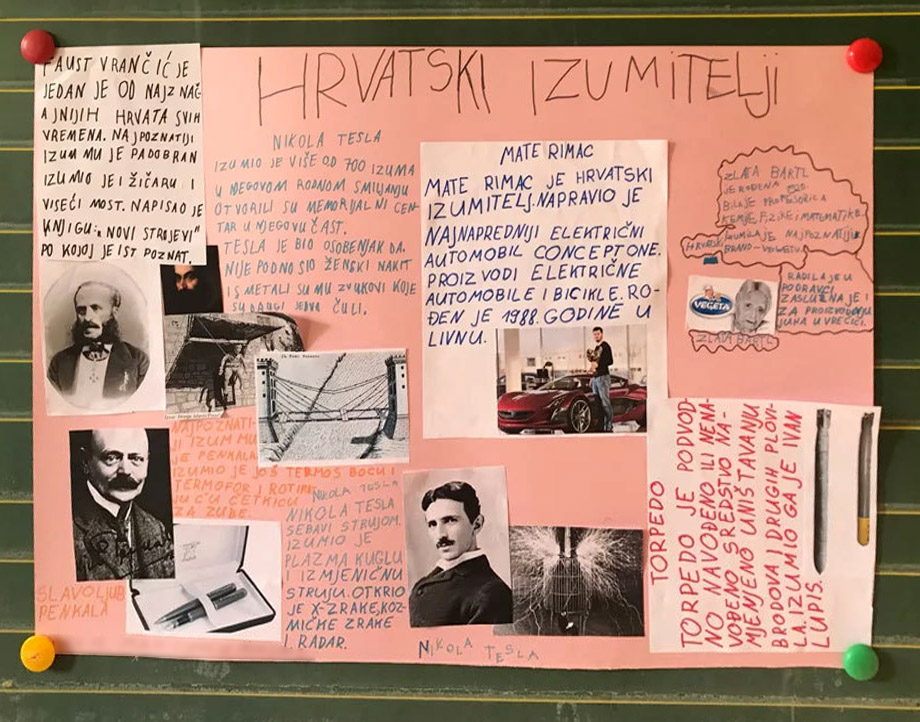 HRVATSKI IZUMITELJI
FAUST VRANČIĆ JE
JEDAN JE OD NAJZNAČ-
AJNIJIH HRVATA SVIH
VREMENA. NAJPOZNATIJI
IZUM MU JE PADOBRAN
IZUMIO JE I ŽIČARU I
VISEĆI MOST. NAPISAO JE
KNJIGU: "NOVI STROJEVI"
PO KOJOJ JE IST POZNAT.
NIKOLA TESLA
IZUMIO JE VIŠE OD 700 IZUMA
U NJEGOVOM RODNOM SMILJANU
OTVORILI SU MEMORIJALNI CEN-
TAR U NJEGOVU ČAST.
TESLA JE BIO OSOBENJAK DA.
NIJE PODNOSIO ŽENSKI NAKIT
I S METALI SU MU ZVUKOVI KOJE
SU DRUGI JEDVA ČULI.
MATE RIMAC
MATE RIMAC JE HRVATSKI
IZUMITELJ. NAPRAVIO JE
NAJNAPREDNIJI ELEKTRIČNI
AUTOMOBIL CONCEPT ONE.
PROIZVODI ELEKTRIČNE
AUTOMOBILE I BICIKLE. RO-
ĐEN JE 1988. GODINE U
LIVNU.
ZLATA BARTL
JE ROĐENA
BILA JE PROFESORICA
KEMIJE, FIZIKE I MATEMATIKE.
IZUMILA JE NAJPOZNATIJI
HRVATSKI BRAND - VEGETU.
RADILA JE U
PODRAVCI
ZASLUŽNA JE I
ZA PROIZVODNJU
JUHA U VREĆICI.
VEGETA
ZLATA BARTL
NAJPOZNATI-
JI IZUM MU
JE PENKALA
IZUMIO JE JOŠ TERMOS BOCU I
TERMOFOR I ROTIRA
JUĆU ČETKICU
ZA ZUBE.
SLAVOLJUB
PENKALA
NIKOLA TESLA
NIKOLA TESLA
SE BAVI STRUJOM.
IZUMIO JE
PLAZMA KUGLU
I IZMJENIČNU
STRUJU. OTKRIO
JE X-ZRAKE, KOZ-
MIČKE ZRAKE
I RADAR.
NIKOLA TESLA
TORPEDO
TORPEDO JE PODVOD-
NO NAVOĐENO ILI NENA-
VOĐENO SREDSTVO NA-
MJENJENO UNIŠTAVANJU
BRODOVA I DRUGIH PLOVI-
LA. IZUMIO GA JE IVAN
LUPIS.